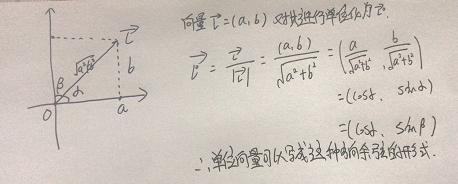 向量 \vec{l}=(a,b) 对其进行单位化为 \vec{l}.
\vec{l} = \frac{\vec{l}}{|\vec{l}|} = \frac{(a,b)}{\sqrt{a^2+b^2}} = \left(\frac{a}{\sqrt{a^2+b^2}}, \frac{b}{\sqrt{a^2+b^2}}\right)
=(cosα, sinα)
=(cosα, sinβ)
∴ 单位向量可以写成这种方向余弦的形式.
\vec{l}
\sqrt{a^2+b^2}
b
β
α
O
a